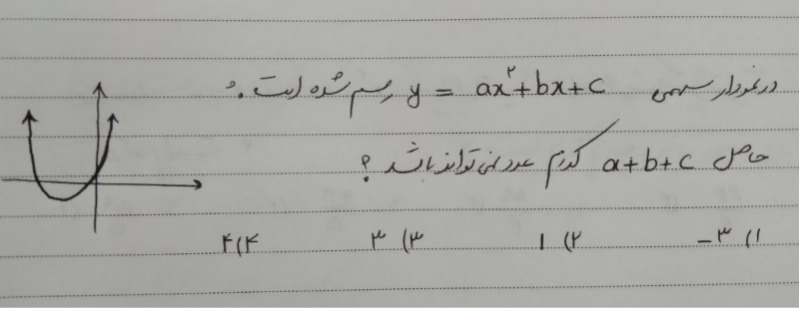 در نمودار سهمی y = ax²+bx+c رسم شده است.
حاصل a+b+c کدام عدد نمی تواند باشد ؟
۱) -۳ ۲) ۱ ۳) ۳ ۴) ۴